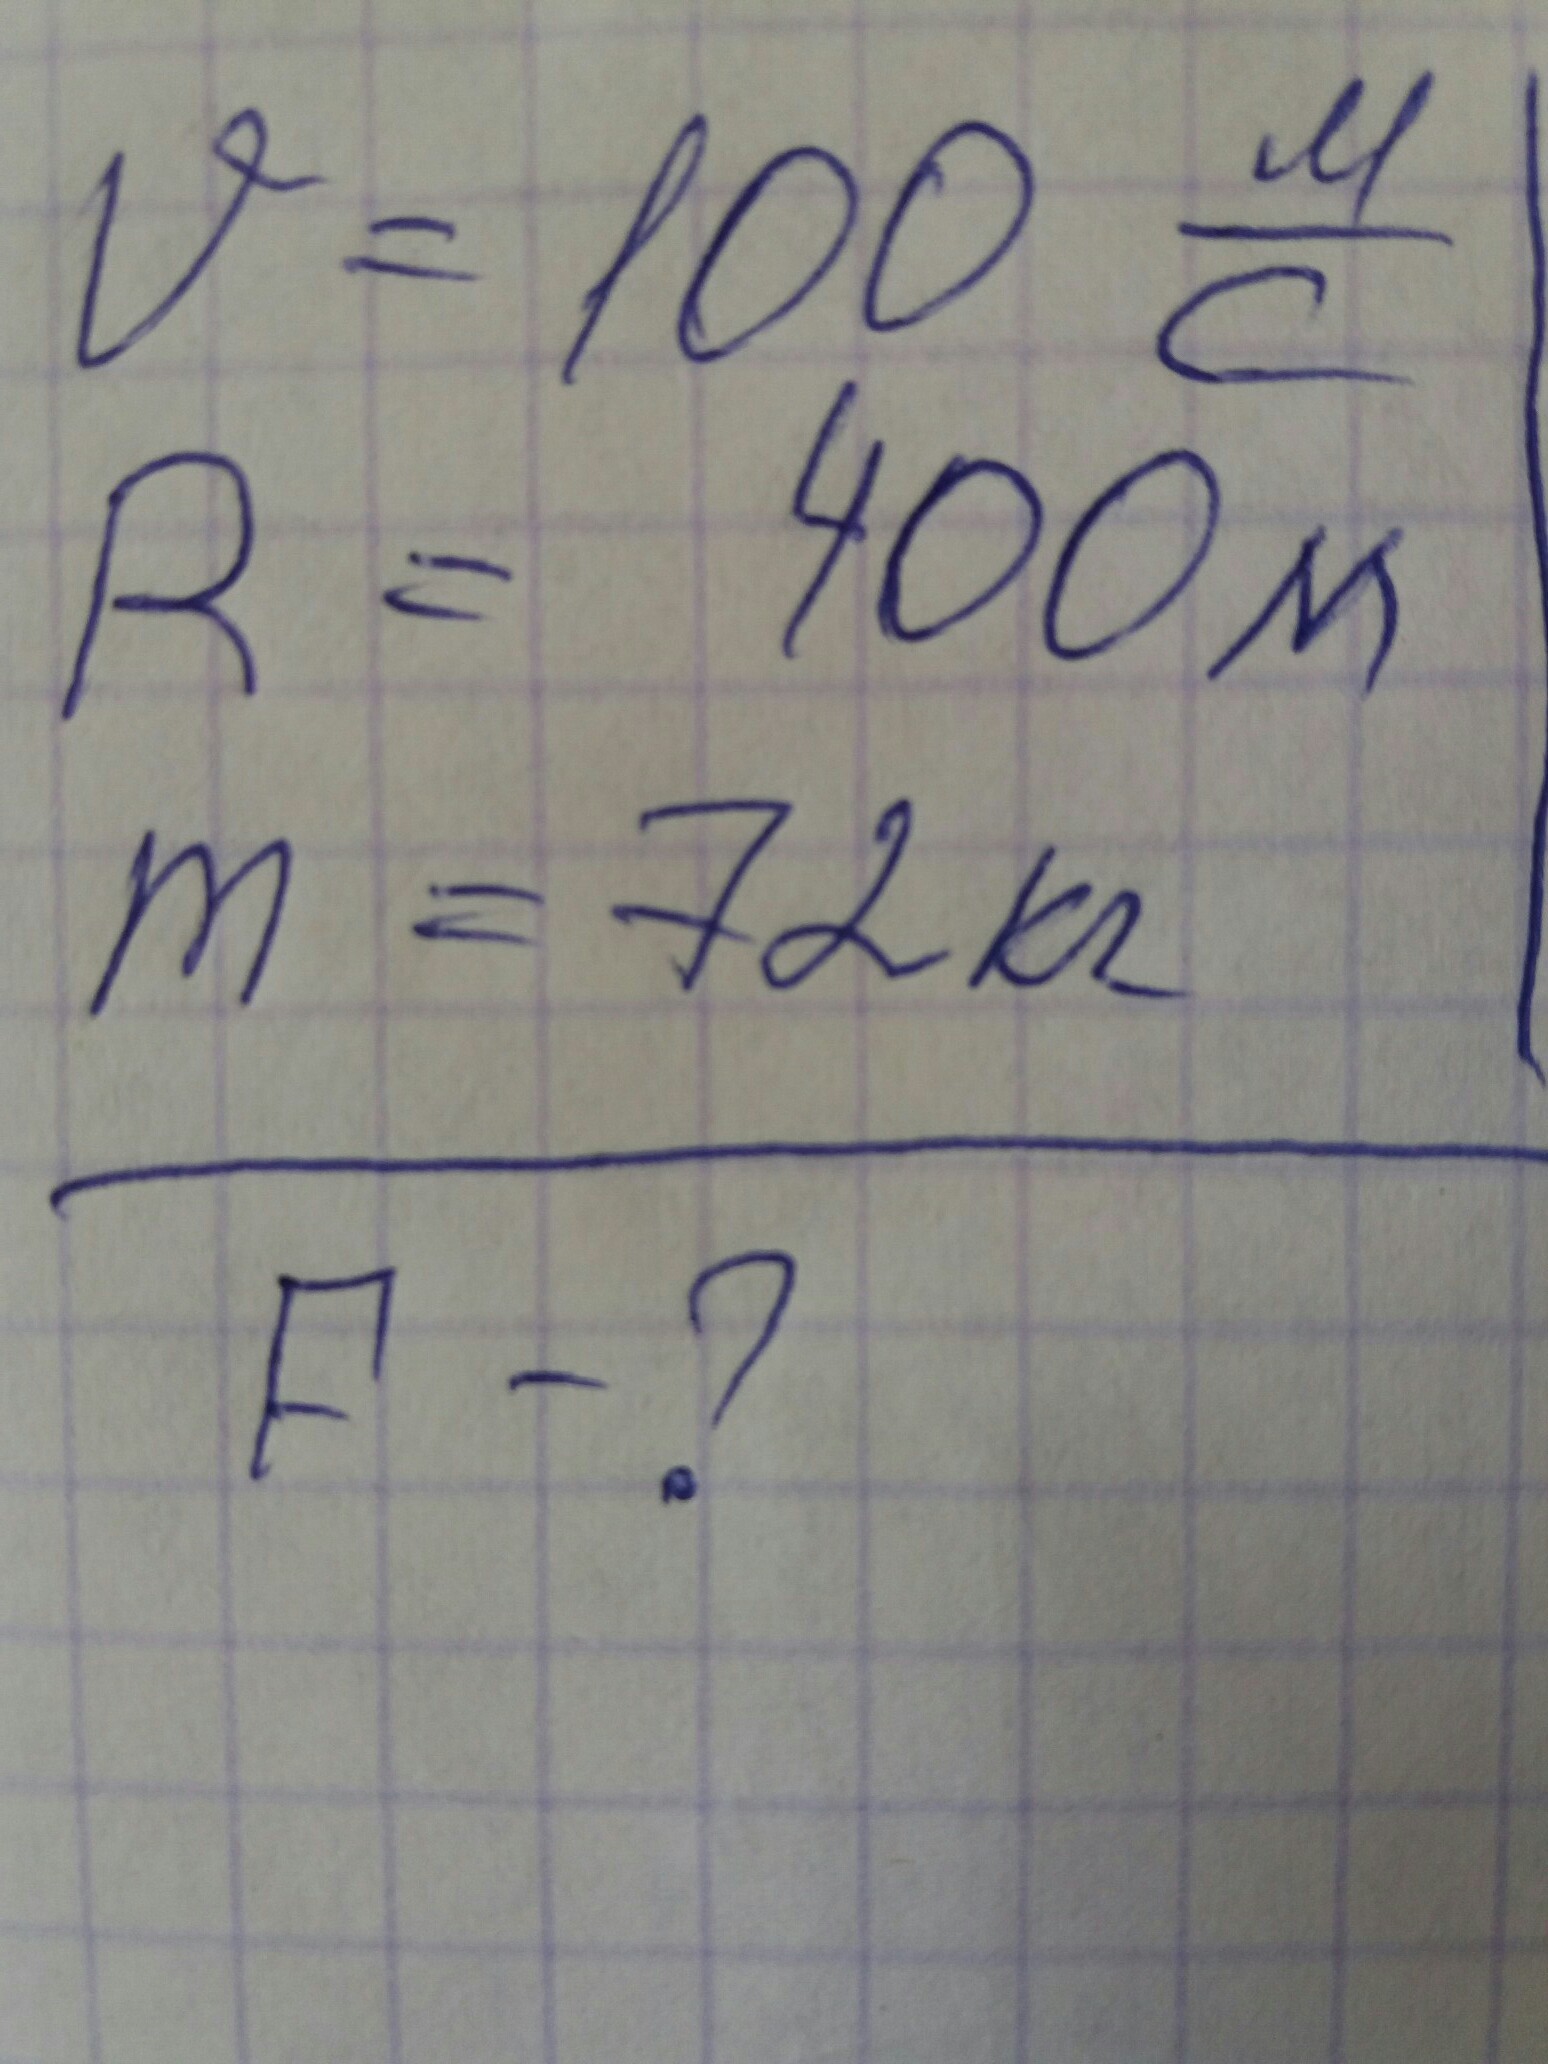 v = 100 м/с
R = 400 м
m = 72 кг
F - ?